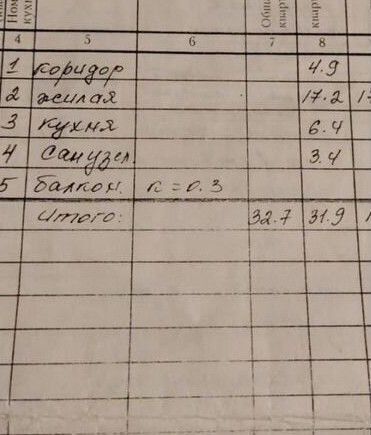 Общ
кварт
кварт
4 5 6 7 8
1 коридор 4.9
2 жилая 17.2 17
3 кухня 6.4
4 Санузел. 3.4
5 балкон. к=0.3
Итого: 32.7 31.9